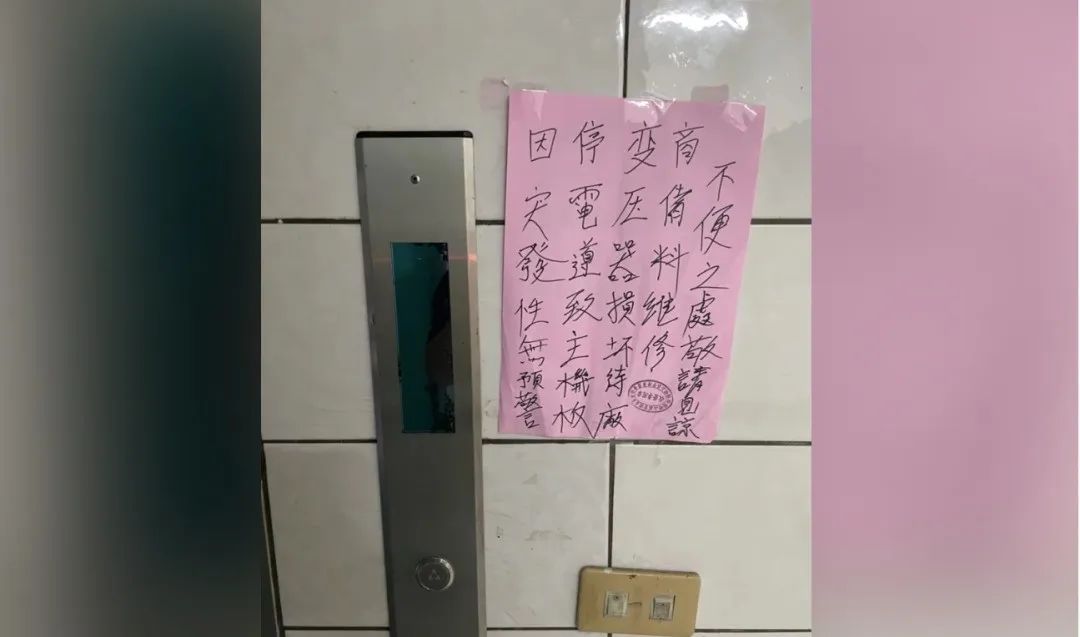 因突發性無預警
停電導致主機板
变压器損坏待廠
商備料維修
不便之處敬請見諒